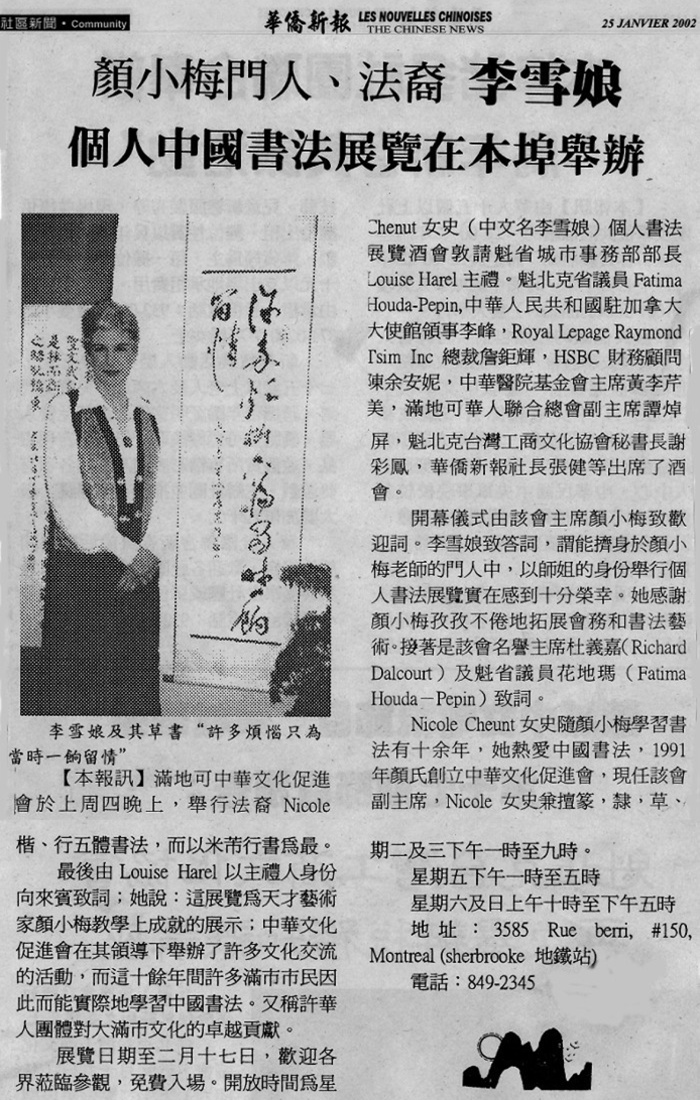 社區新聞・Community
華僑新報 LES NOUVELLES CHINOISES
THE CHINESE NEWS
25 JANVIER 2002
顏小梅門人、法裔 李雪娘
個人中國書法展覽在本埠舉辦
許多煩惱只為當時一餉
留情
李雪娘及其草書“許多煩惱只為
當時一餉留情”
【本報訊】滿地可中華文化促進
會於上周四晚上，舉行法裔 Nicole
Chenut 女史（中文名李雪娘）個人書法
展覽酒會敦請魁省城市事務部部長
Louise Harel 主禮。魁北克省議員 Fatima
Houda-Pepin,中華人民共和國駐加拿大
大使館領事李峰，Royal Lepage Raymond
Tsim Inc 總裁詹鉅輝，HSBC 財務顧問
陳余安妮，中華醫院基金會主席黃李芹
美，滿地可華人聯合總會副主席譚焯
屏，魁北克台灣工商文化協會秘書長謝
彩鳳，華僑新報社長張健等出席了酒
會。
開幕儀式由該會主席顏小梅致歡
迎詞。李雪娘致答詞，謂能擠身於顏小
梅老師的門人中，以師姐的身份舉行個
人書法展覽實在感到十分榮幸。她感謝
顏小梅孜孜不倦地拓展會務和書法藝
術。接著是該會名譽主席杜義嘉（Richard
Dalcourt）及魁省議員花地瑪（Fatima
Houda－Pepin）致詞。
Nicole Cheunt 女史隨顏小梅學習書
法有十余年，她熱愛中國書法，1991
年顏氏創立中華文化促進會，現任該會
副主席，Nicole 女史兼擅篆，隸，草、
楷、行五體書法，而以米芾行書爲最。
最後由 Louise Harel 以主禮人身份
向來賓致詞；她說：這展覽爲天才藝術
家顏小梅教學上成就的展示；中華文化
促進會在其領導下舉辦了許多文化交流
的活動，而這十餘年間許多滿市市民因
此而能實際地學習中國書法。又稱許華
人團體對大滿市文化的卓越貢獻。
展覽日期至二月十七日，歡迎各
界蒞臨參觀，免費入場。開放時間爲星
期二及三下午一時至九時。
星期五下午一時至五時
星期六及日上午十時至下午五時
地址：3585 Rue berri, #150,
Montreal (sherbrooke 地鐵站)
電話：849-2345